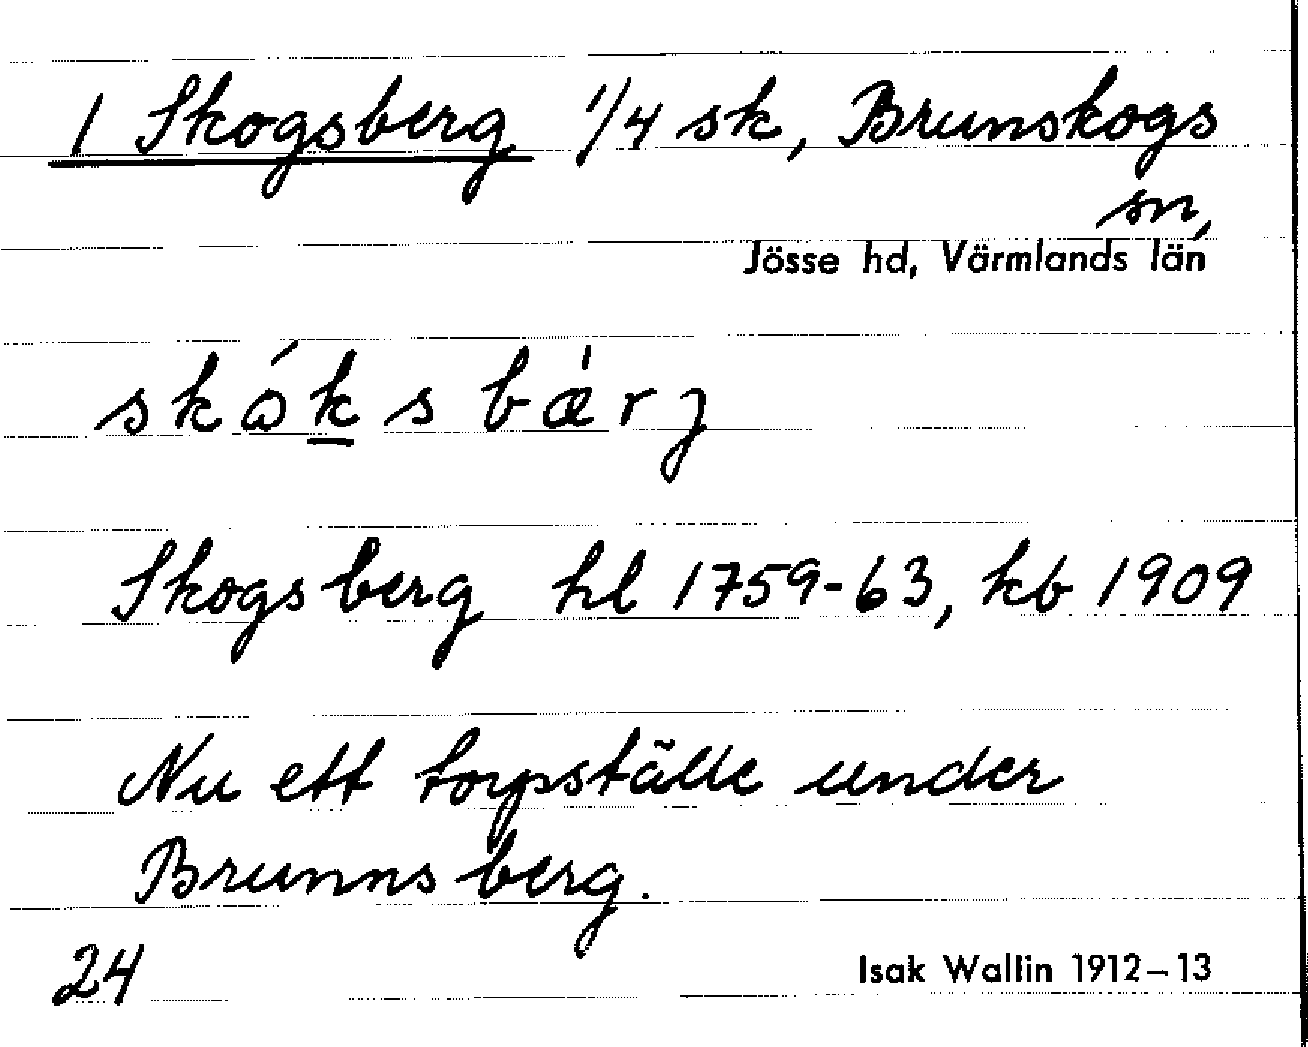 1 Skogsberg 1/4 sk, Brunskogs
sn,
Jösse hd, Värmlands län
skóksbæ̍rj
Skogsberg hl 1759-63, kb 1909
Nu ett torpställe under
Brunnsberg.
24
Isak Wallin 1912–13